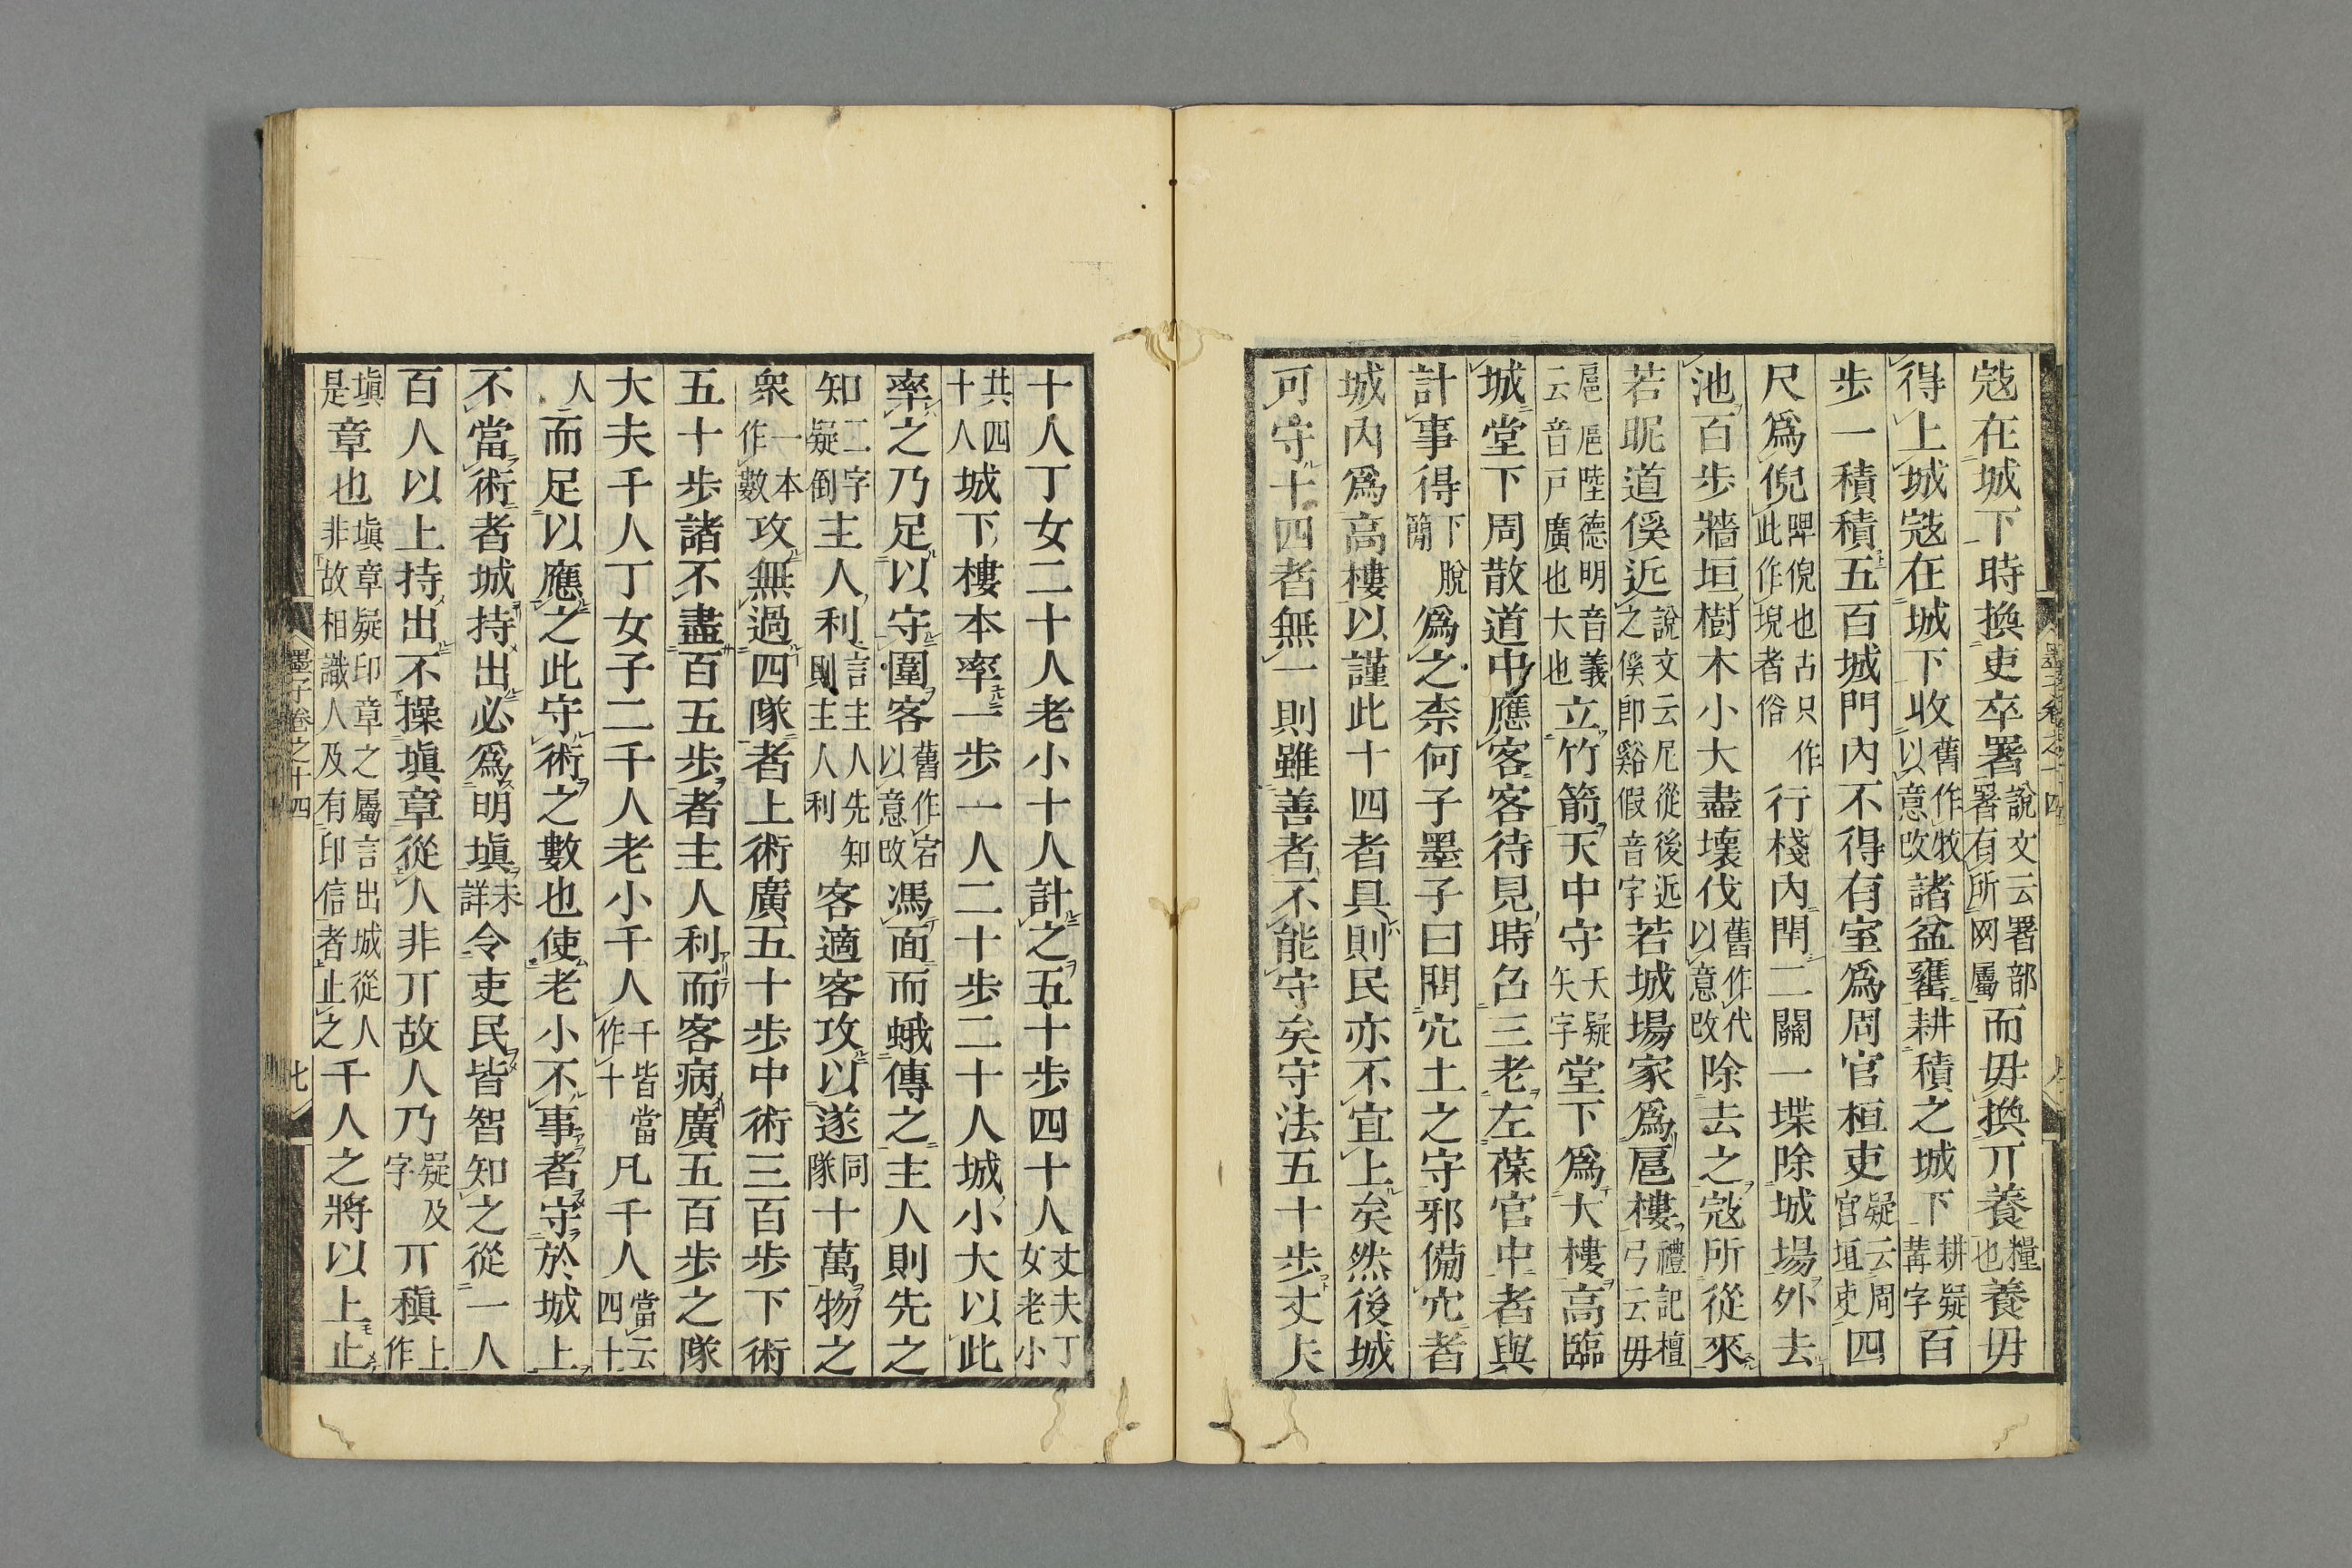 寇在城下時換吏卒署說文云署部署有所网屬而毋換丌養糧也養毋
得上城寇在城下收舊作牧以意改諸盆罋耕積之城下耕疑冓字百
步一積積五百城門內不得有室爲周官桓吏疑云周官垣吏四
尺爲倪睥倪也古只作此作堄者俗行棧內閈二關一堞除城場外去
池百步牆垣樹木小大盡壞伐舊作代以意改除去之寇所從來
若昵道傒近說文云尼從後近之傒卽谿假音字若城場家爲扈樓禮記檀弓云毋
扈扈陸德明音義云音戸廣也大也立竹箭天中守天疑矢字堂下爲大樓高臨
城堂下周散道中應客客待見時召三老左葆官中者與
計事得下脫簡爲之柰何子墨子曰問穴土之守邪備穴者
城內爲高樓以謹此十四者具則民亦不宜上矣然後城
可守十四者無一則雖善者不能守矣守法五十步丈夫
十人丁女二十人老小十人計之五十步四十人丈夫丁女老小
共四十人城下樓本率一步一人二十步二十人城小大以此
率之乃足以守圍客舊作宕以意改馮面而蛾傅之主人則先之
知二字疑倒主人利言主人先知則主人利客適客攻以遂同隊十萬物之
衆一本作數攻無過四隊者上術廣五十步中術三百步下術
五十步諸不盡百五步者主人利而客病廣五百步之隊
大夫千人丁女子二千人老小千人千皆當作十凡千人當云四十
人而足以應之此守術之數也使老小不事者守於城上
不當術者城持出必爲明塡未詳令吏民皆智知之從一人
百人以上持出不操塡章從人非丌故人乃疑及字丌稹上作
塡是章也塡章疑印章之屬言出城從人非故相識人及有印信者止之千人之將以上止
墨子卷之十四
七